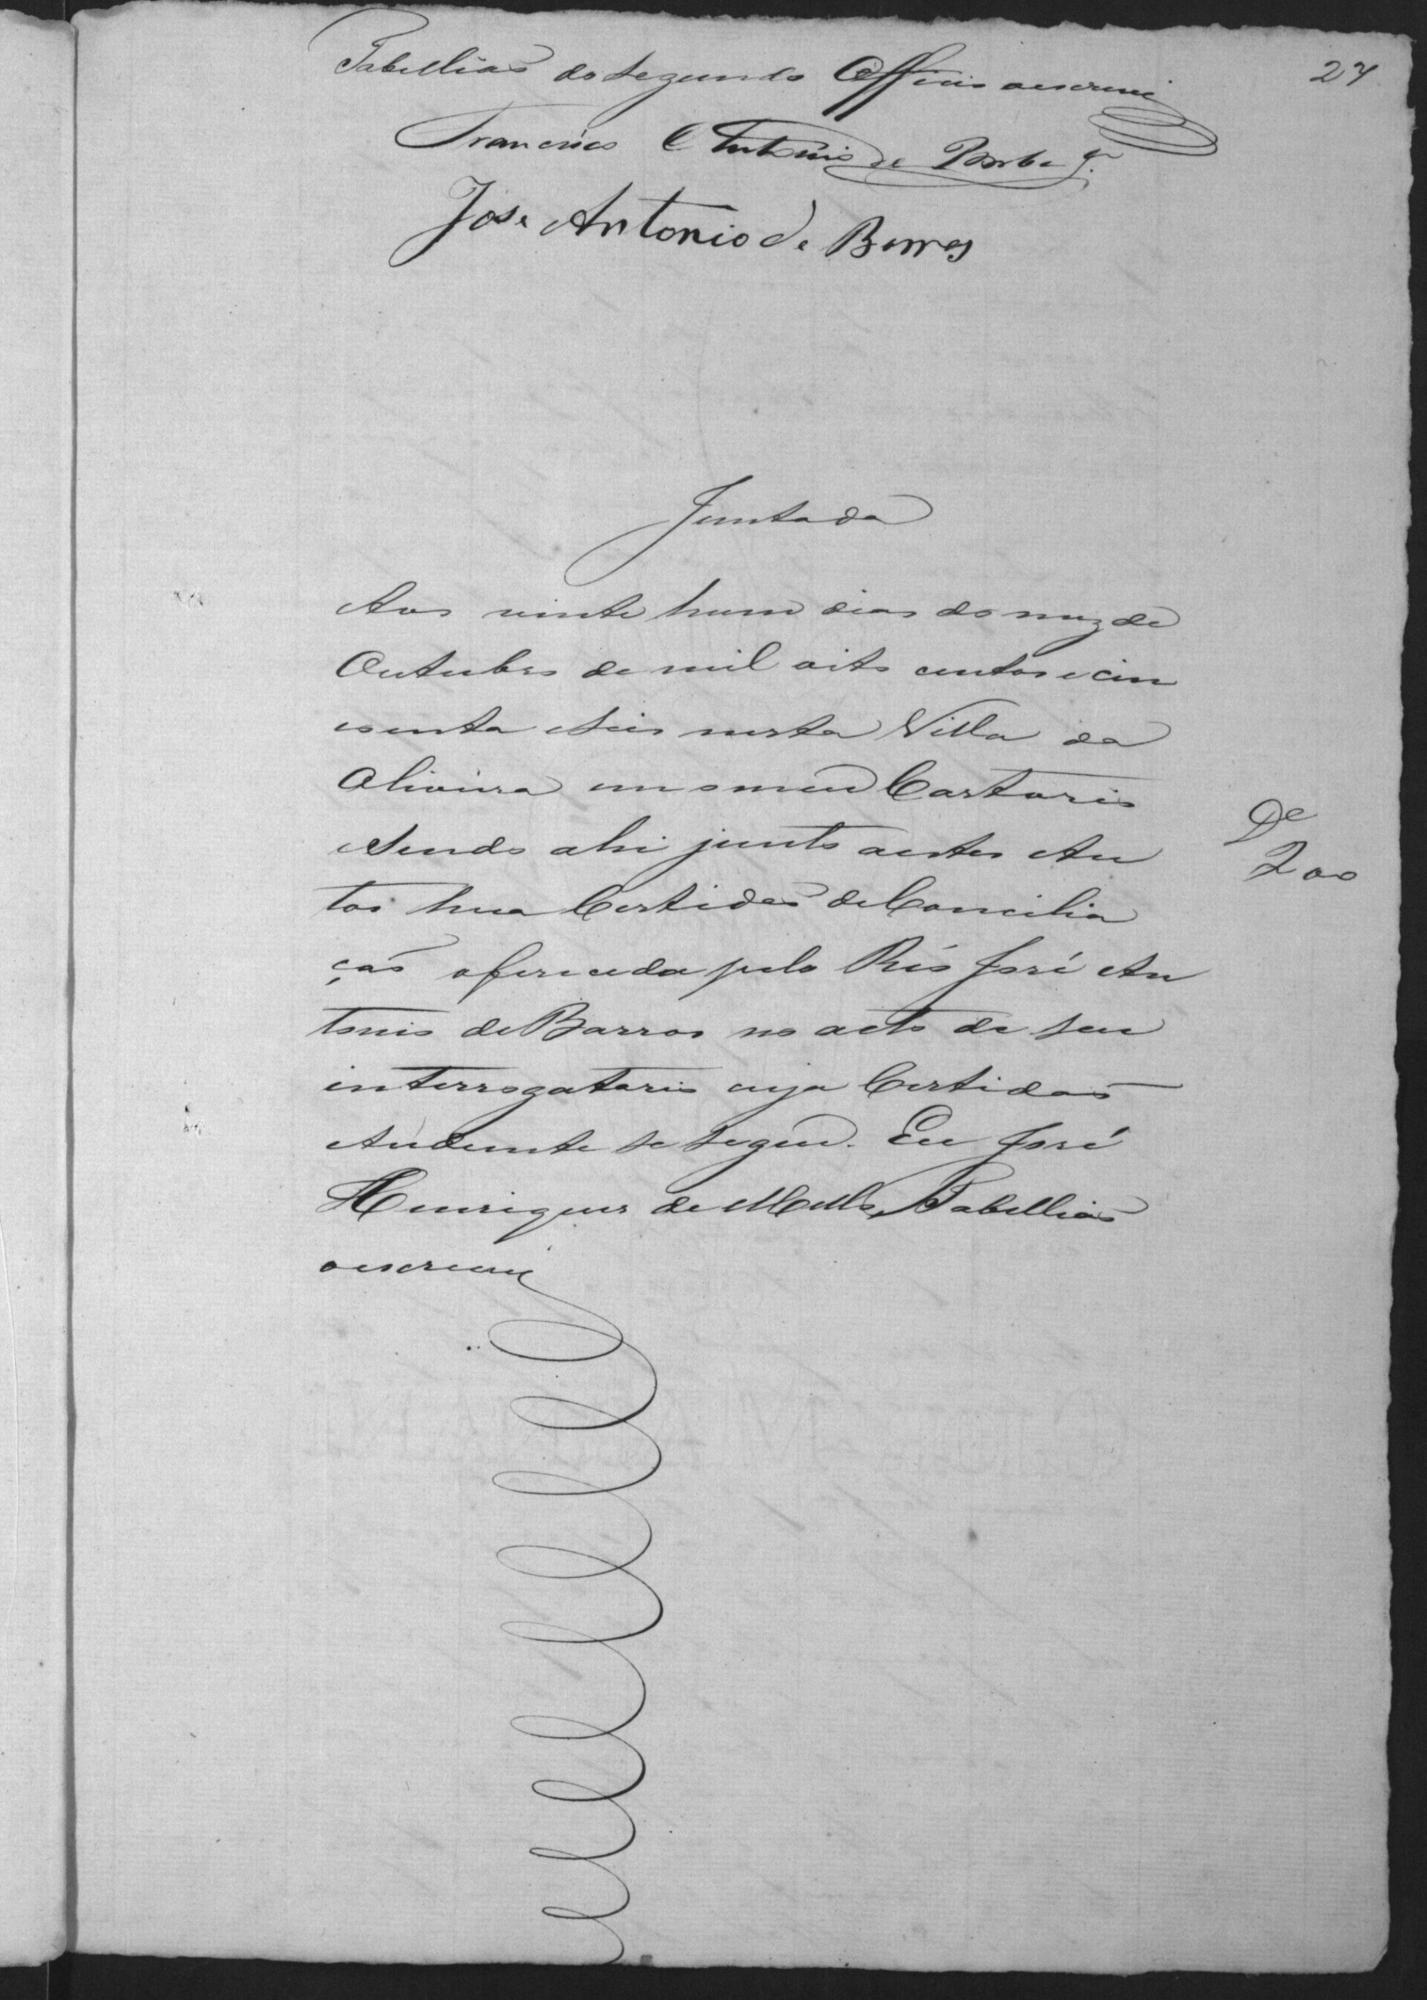 Tabellião do Segundo Officio o escrevi
27
Francisco Antonio de Borba
Jose Antonio de Barros
Juntada
Aos vinte hum dias do mez de
Outubro de mil oito centos e cin
coenta Seis nesta Villa da
Oliveira em o meu Cartorio
Sendo ahi junto a estes Au
De
200
tos hua Certidão de Concilia
ção oferecida pelo Réo José An
tonio de Barros no acto de seu
interrogatorio cuja Certidão
Adeante se segue. Eu José
Henriques de Mello, Tabellião
o escrevi